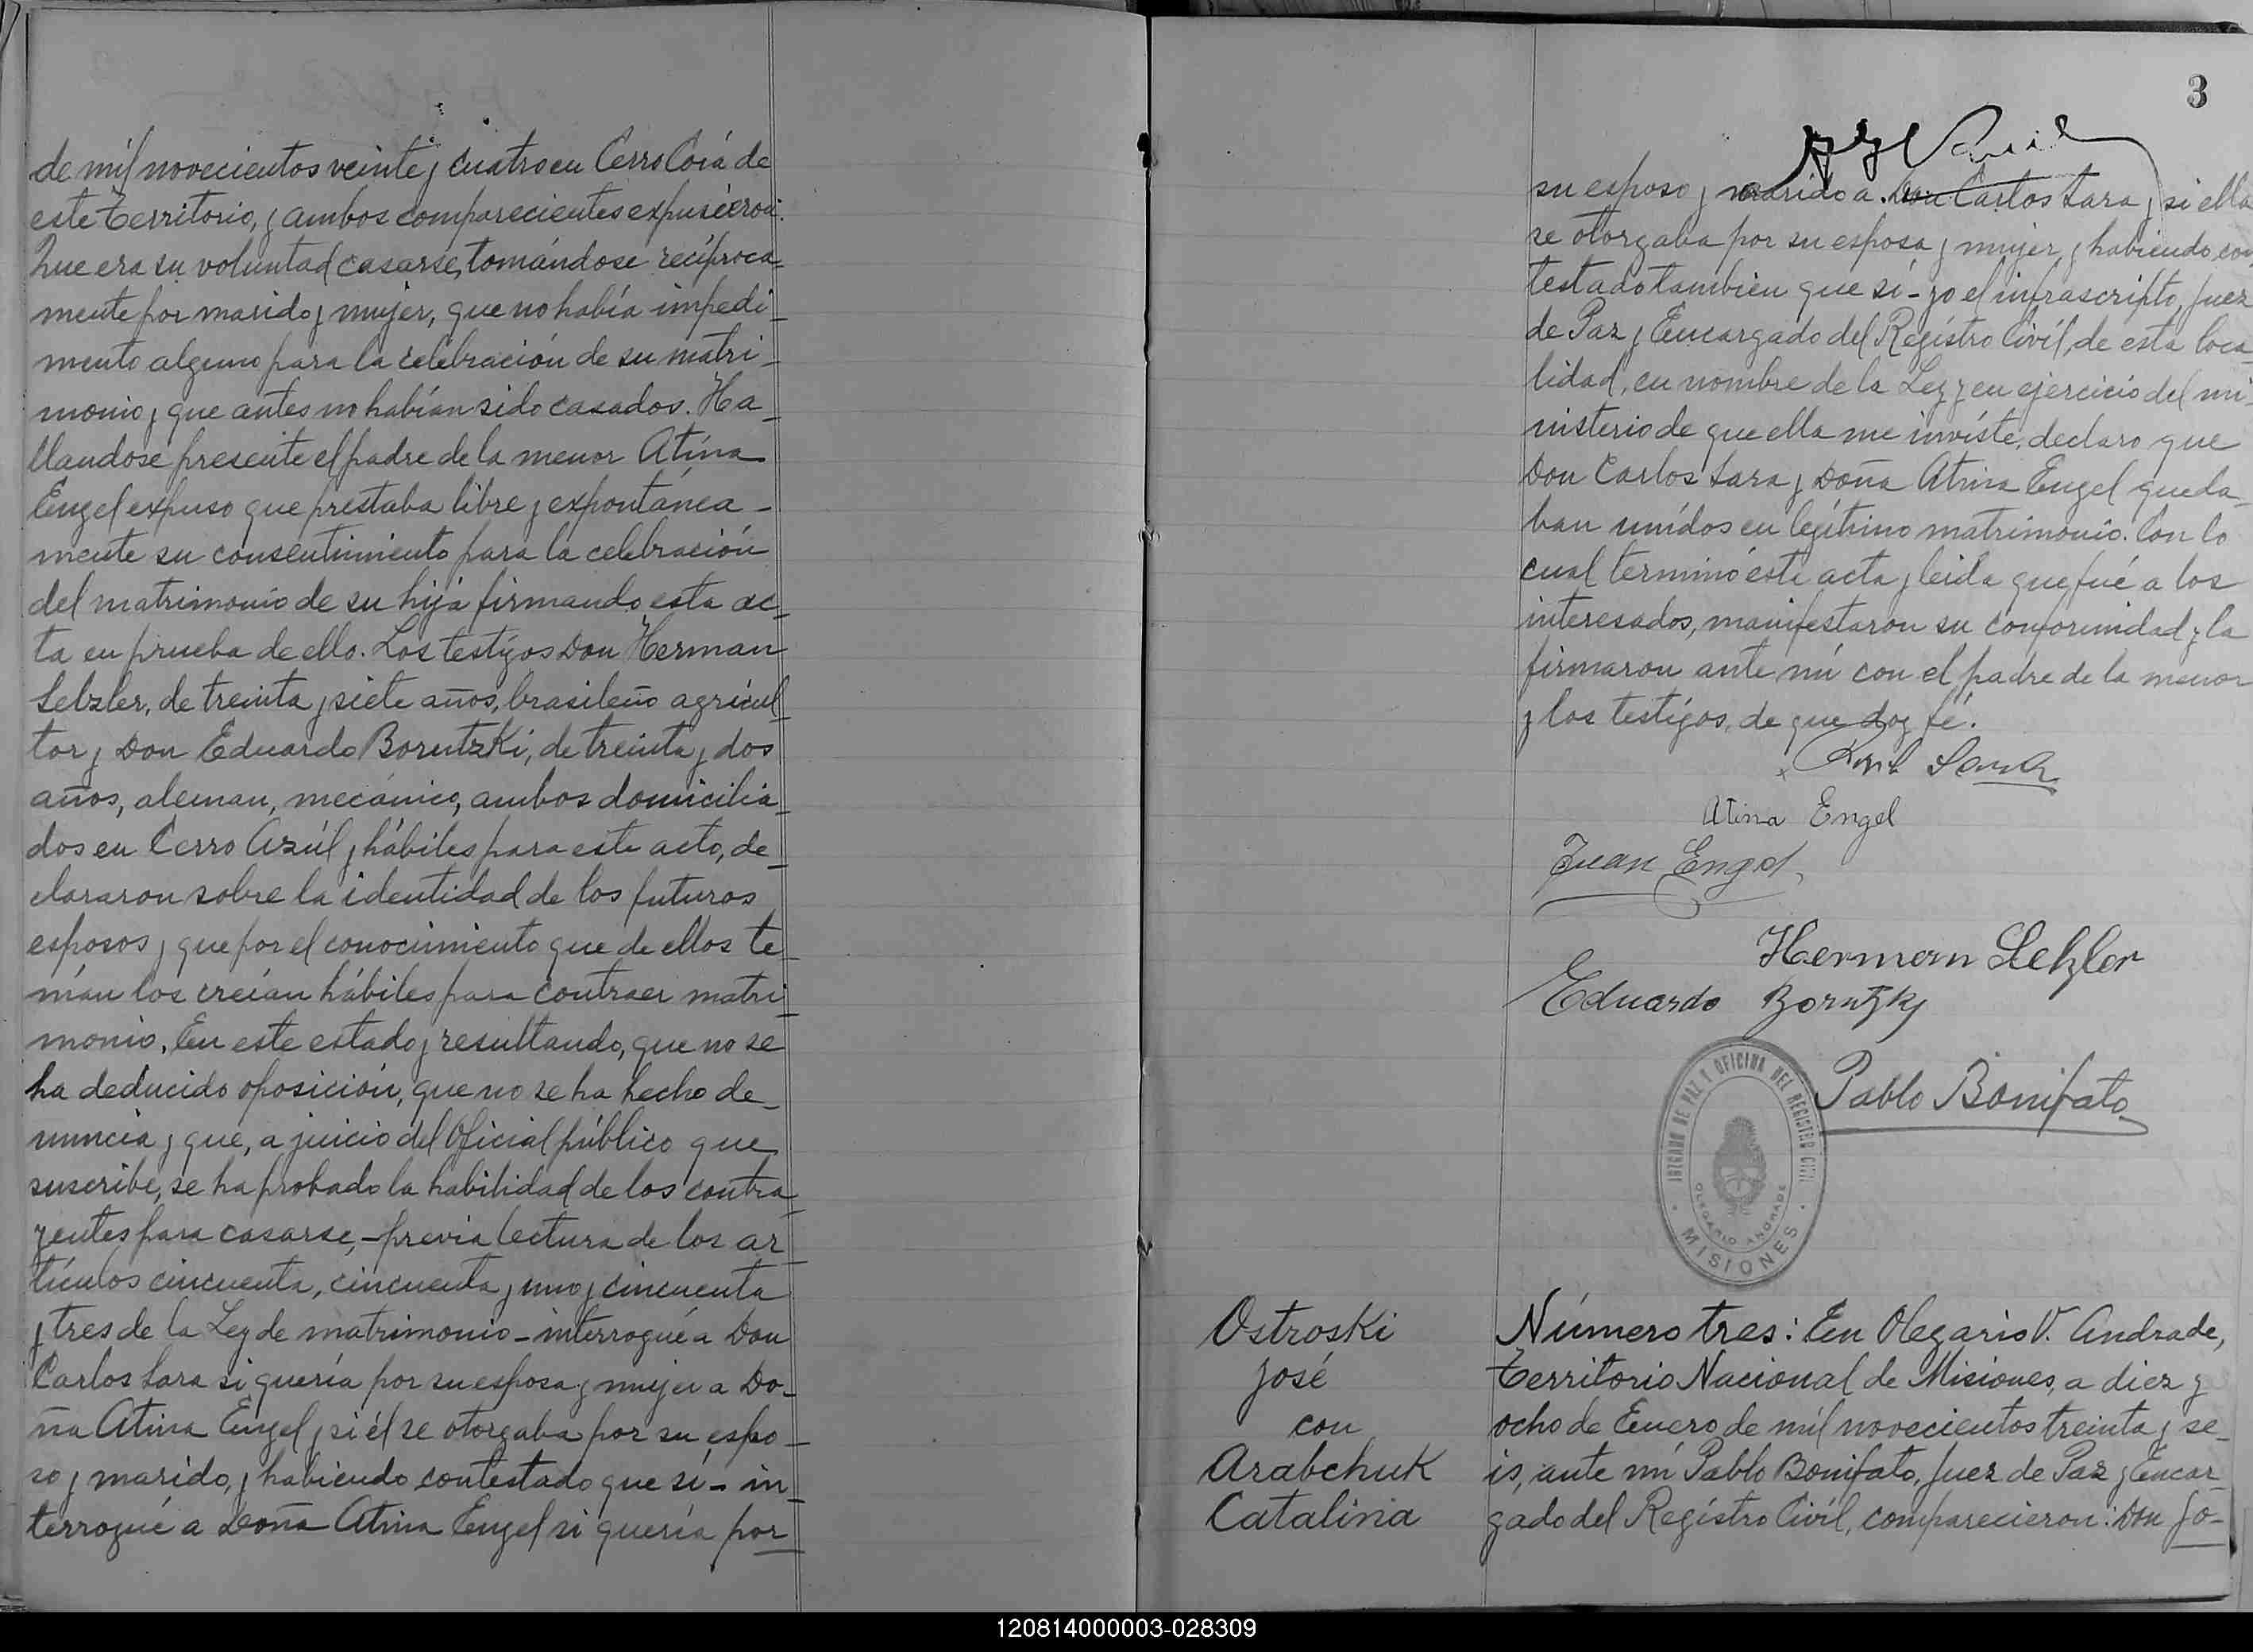 de mil novecientos veinte y cuatro en Cerro Corá de
este territorio, y ambos comparecientes expusieron:
Que era su voluntad casarse, tomándose recíproca-
mente por marido y mujer, que no había impedi-
mento alguno para la celebración de su matri-
monio y que antes no habían sido casados. Ha-
llandose presente el padre de la menor Atina
Engel expuso que prestaba libre y expontánea-
mente su consentimiento para la celebración
del matrimonio de su hija firmando esta ac-
ta en prueba de ello. Los testigos Don Herman
Selzler, de treinta y siete años, brasileño agricul-
tor y Don Eduardo Borutzki, de treinta y dos
años, aleman, mecánico, ambos domicilia-
dos en Cerro Azúl y hábiles para este acto, de-
clararon sobre la identidad de los futuros
esposos y que por el conocimiento que de ellos te-
nían los creían hábiles para contraer matri-
monio. En este estado y resultando, que no se
ha deducido oposición, que no se ha hecho de-
nuncia y que, a juicio del Oficial público que
suscribe, se ha probado la habilidad de los contra-
yentes para casarse, - previa lectura de los ar-
tículos cincuenta, cincuenta y uno y cincuenta
y tres de la Ley de matrimonio - interrogué a Don
Carlos Sara si quería por su esposa y mujer a Do-
ña Atina Engel y si él se otorgaba por su espo-
so y marido, y habiendo contestado que sí - in-
terrogué a Doña Atina Engel si quería por
3
su esposo y marido a Don Carlos Sara y si ella
se otorgaba por su esposa y mujer, y habiendo con-
testado tambien que sí - yo el infrascripto, Juez
de Paz y Encargado del Registro Civíl, de esta loca-
lidad, en nombre de la Ley y en ejercicio del mi-
nisterio de que ella me inviste, declaro que
Don Carlos Sara y Doña Atina Engel queda-
ban unídos en legítimo matrimonio. Con lo
cual terminó este acta y leida que fué a los
interesados, manifestaron su conformidad y la
firmaron ante mí con el padre de la menor
y los testigos, de que doy fé.
Atina Engel
Juan Engel
Herman Selzler
Eduardo Borutzky
Pablo Bonifato
JUZGADO DE PAZ Y OFICINA DEL REGISTRO CIVIL
OLEGARIO ANDRADE
MISIONES
Ostroski
José
con
Arabchuk
Catalina
Número tres: En Olegario V. Andrade,
Territorio Nacional de Misiones, a diez y
ocho de Enero de mil novecientos treinta y se-
is, ante mí Pablo Bonifato, Juez de Paz y Encar-
gado del Registro Civíl, comparecieron: Don Jo-
120814000003-028309